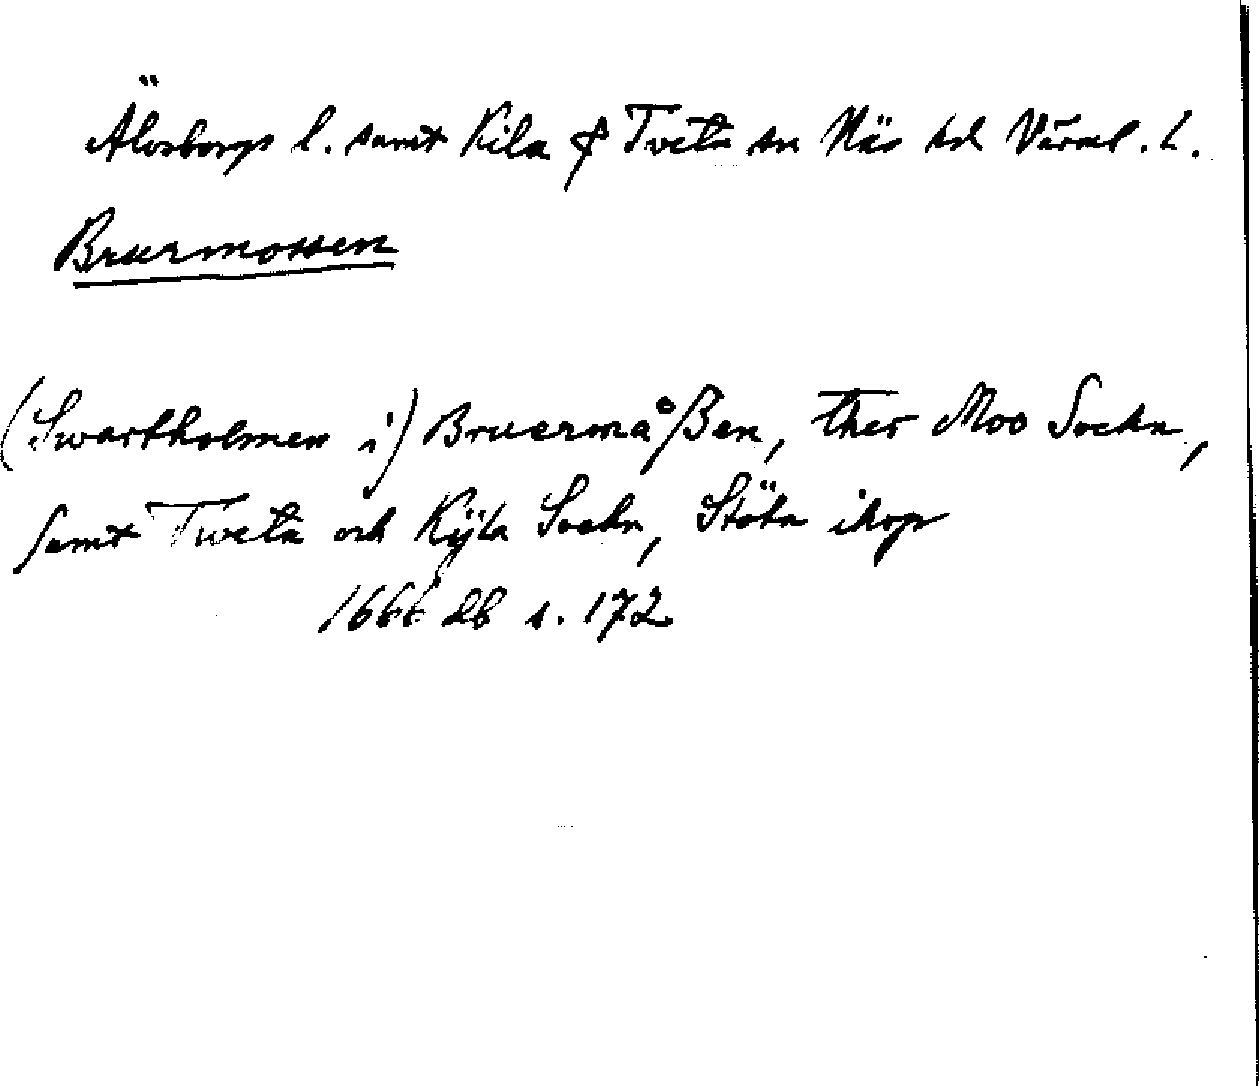 Älvsborgs l. samt Kila & Tveta sn Näs hd Värml. l.
Bruermossen
(Swartholmen i) Bruermåßen, ther Moo Sockn,
samt Tweta och Kÿla Sockn, Stöta ihop
1666 db s. 172